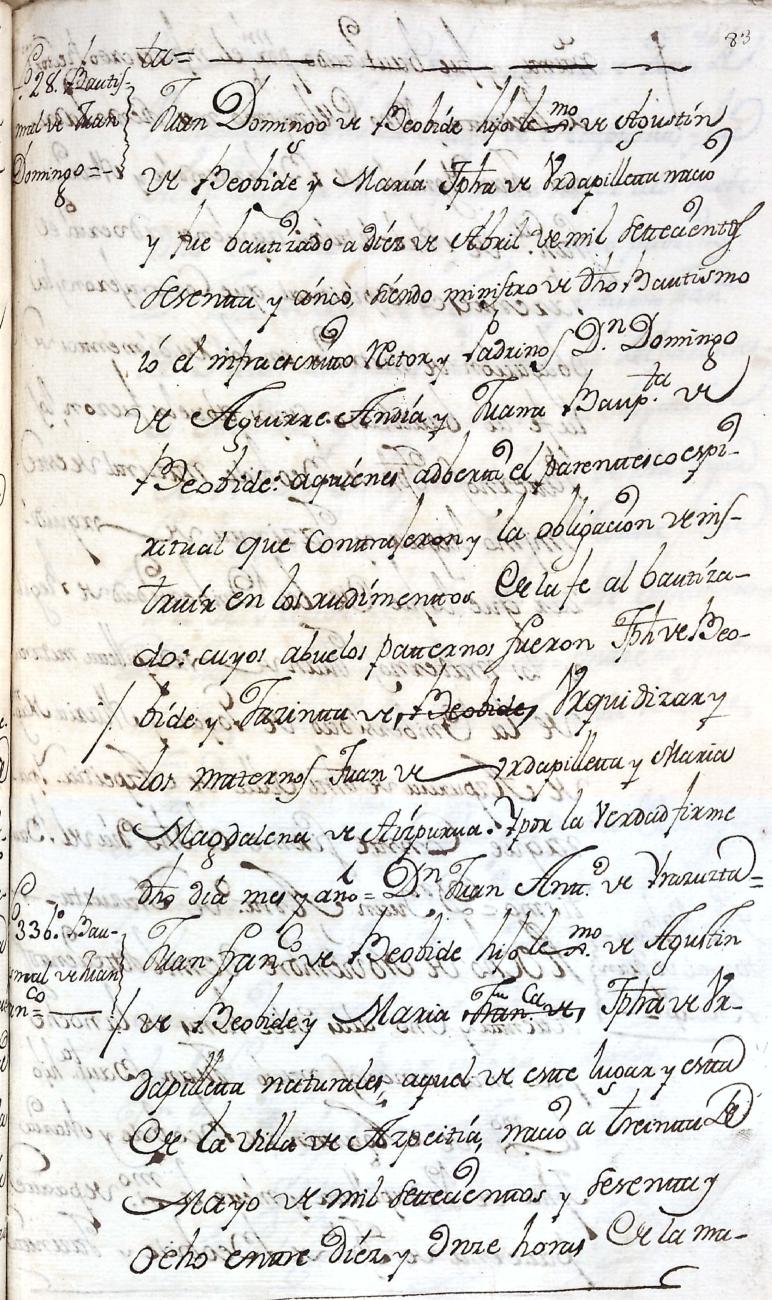 83
ta=
P.º 28. Bautis-
mal de Juan
Domingo =
Juan Domingo de Beobide hijo lexmo de Agustin
de Beobide y María Jpha de Vrdapilleta nacio
y fue bautizado a diez de Abril de mil settecientos
sesenta y cinco, siendo ministro de dho Bautismo
ió el infraescrito Retor, y Padrinos Dn. Domingo
de Aguirre Andía y Juana Baup.ta de
Beobide: aquiénes adbertí el parentesco espi-
ritual que contrajeron y la obligacion de ins-
truir en los rudimentos de la fe al bautiza-
do: cuyos abuelos paternos fueron Jph de Beo-
bide y Jazinta de, Beobide, Vrquidizar y
los maternos Juan de Vrdapilleta y Maria
Magdalena de Aizpurua. Y por la Verdad firme
dho día mes y año = Dn Juan Antt.º de
336. Bau-
mal de Juan
co
Juan Franco de Beobide hijo lexmo. de Agustin
de Beobide y Maria Fran ca de, Jpha de Vr-
dapilleta naturales, aquel de este lugar y esta
de la villa de Azpeitia, nació a treinta de
Mayo de mil settecientos y sesenta y
ocho entre diéz y onze horas de la ma-